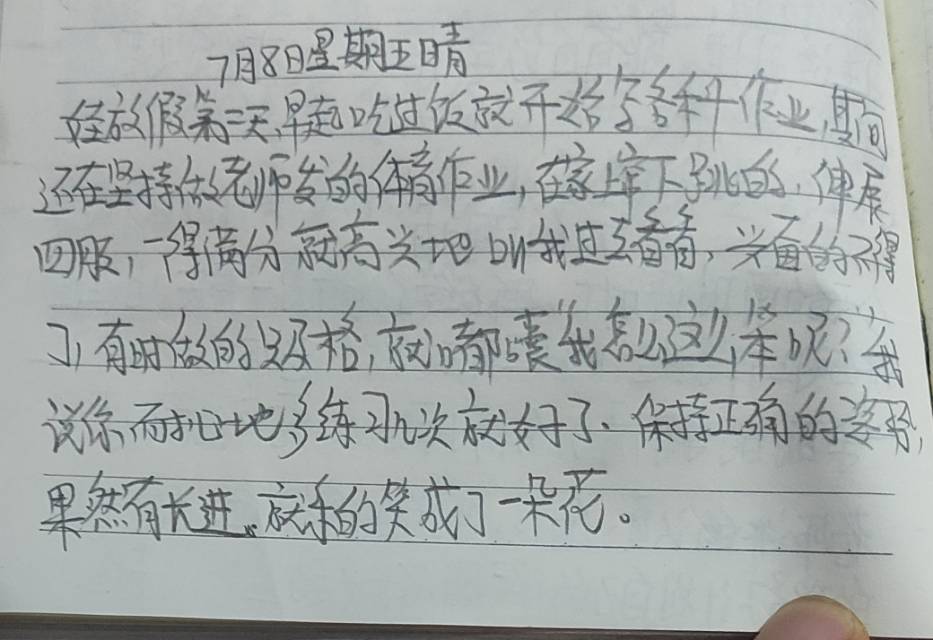 7月8日星期五晴
娃放假第二天,早起吃过饭就开始写各科作业,期间
还在坚持做老师发的体育作业,在家上窜下跳的,伸展
四肢,一得满分就高兴地叫我过去看看,兴奋的不得
了,有时做的只及格,就嘟囔"我怎么这么笨呢?"我
说你耐心地多练习几次就好了.保持正确的姿势,
果然有长进,就乐的笑成了一朵花。